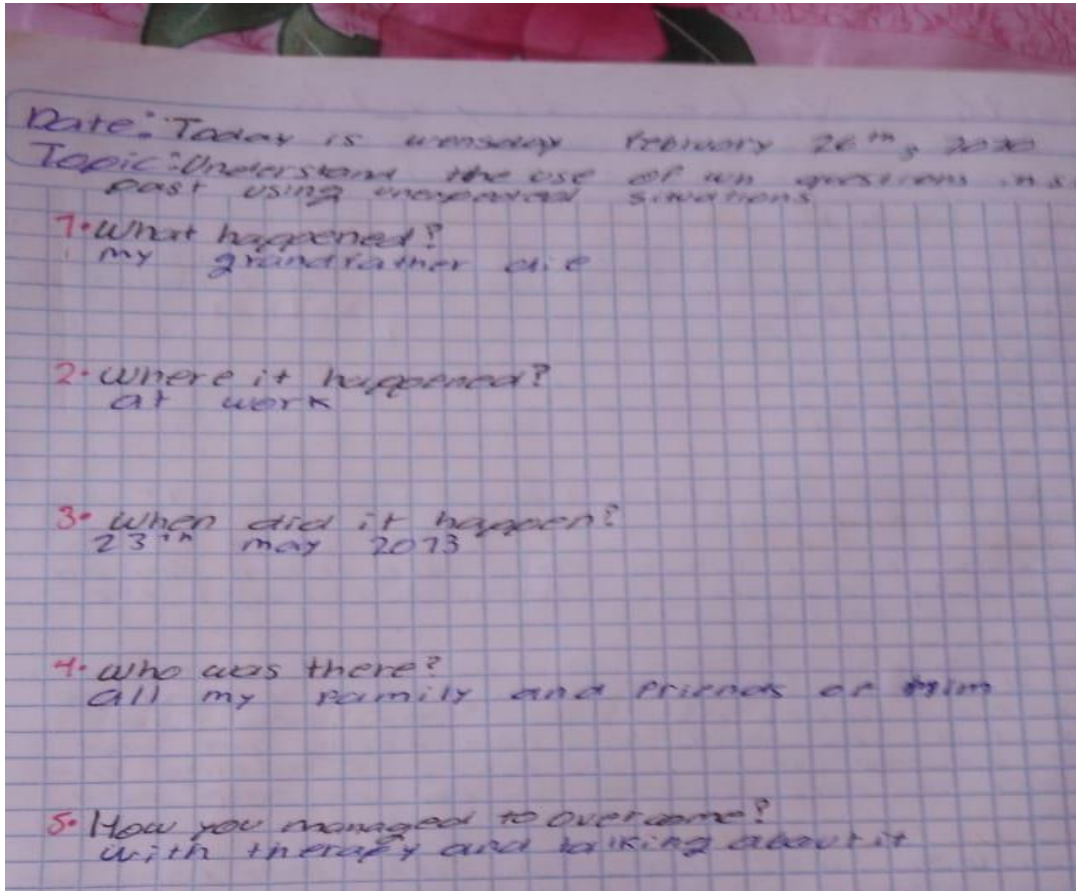 Date: Today is wensday February 26th, 2020
Topic: Understand the use of wh questions in s
past using unexpected situations
1. What happened?
my grandfather die
2. where it happened?
at work
3. when did it happen?
23th may 2013
4. who was there?
all my family and friends of him
5. How you managed to overcome?
with therapy and talking about it